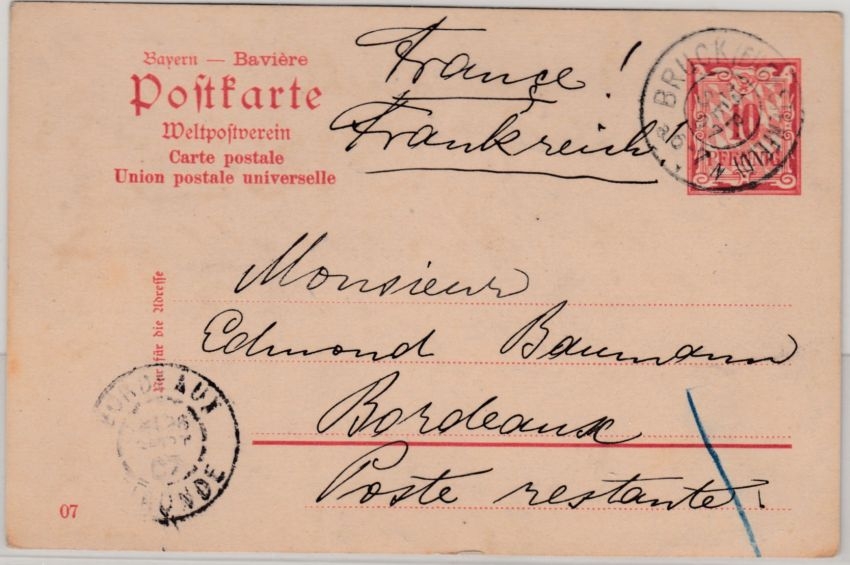 Bayern — Bavière
Postkarte
Weltpostverein
Carte postale
Union postale universelle
France!
Frankreich!
BRUCK
10
PFENNIG
Monsieur
Edmond Baumann
Bordeaux
Poste restante!
Nur für die Adresse
BORDEAUX
GIRONDE
07
07